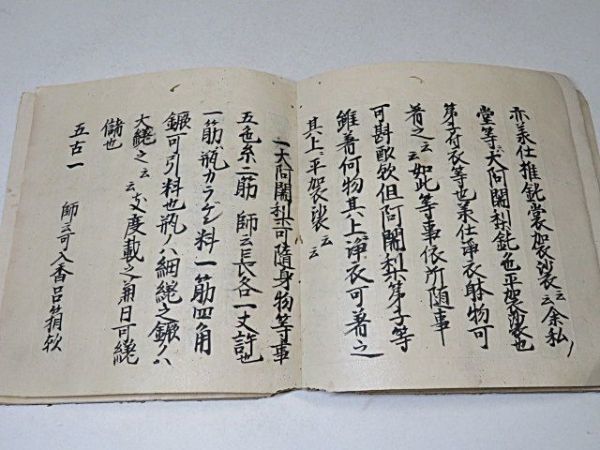 亦承仕推鈍裳袈裟衣云云余私ノ
堂等大阿闍梨鈍色平袈裟也
弟子付衣等也承仕浄衣躰物可
着之云云如此等事依所随事
可斟酌欤但阿闍梨弟子等
雖着何物其上浄衣可着之
其上平袈裟云云
一大阿闍梨可随身物等事
五色糸二筋 師云長各一丈許也
一筋瓶カラゲ料一筋四角
鐝可引料也瓶ノハ細縄之鐝ノハ
大縄之云云支度載之前日可縄
儲也
五古一 師云可入香呂箱欤